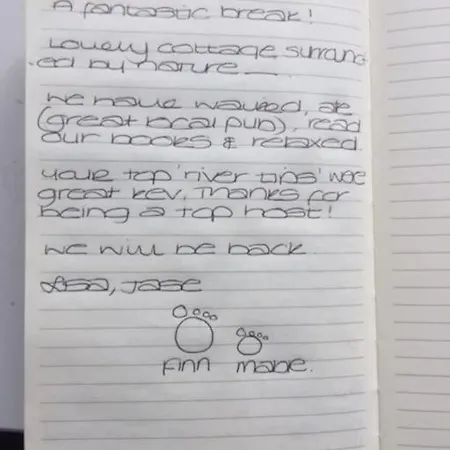 A fantastic break!
Lovely cottage surround
ed by nature
we have walked, ate
(great local pub), read
our books & relaxed.
your top 'river tips' were
great kev. Thanks for
being a top host!
we will be back
Lisa, Jase
Finn mabe.